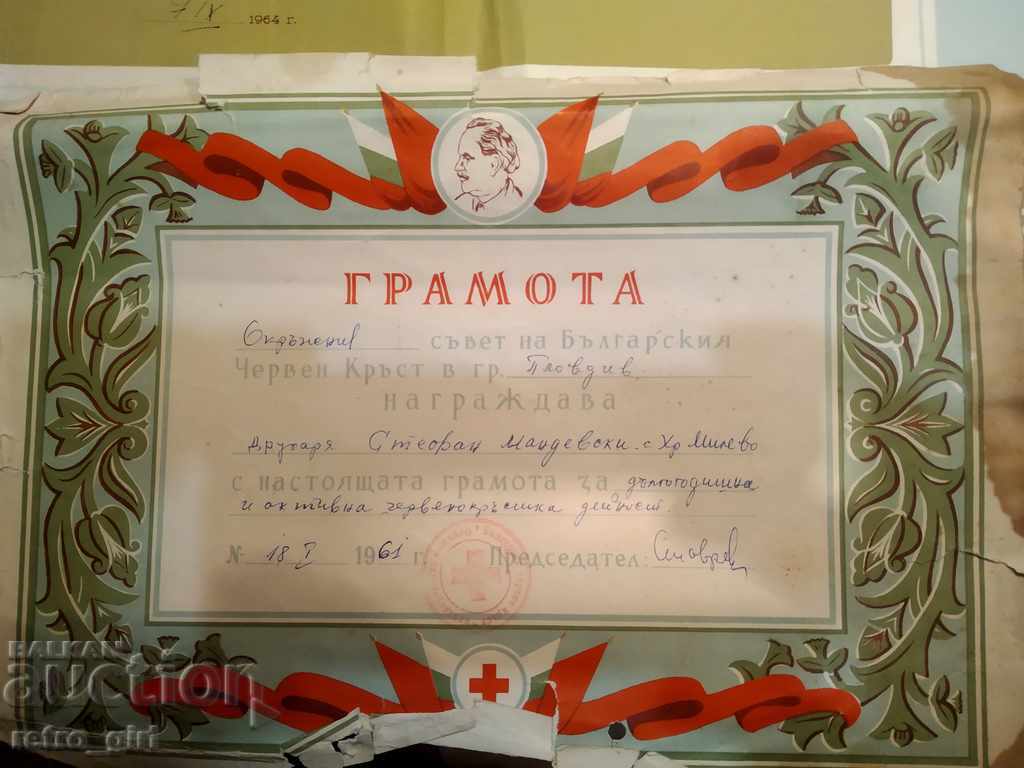 7/IX 1964 г.
ГРАМОТА
Окръжния съвет на Българския
Червен Кръст в гр. Пловдив
награждава
другаря Стефан Мандевски с. Хр Милево
с настоящата грамота за дългогодишна
и активна червенокръстка дейност.
№ 18 I 1961 г. Председател:
БАЛКАН
auction
retro_girl